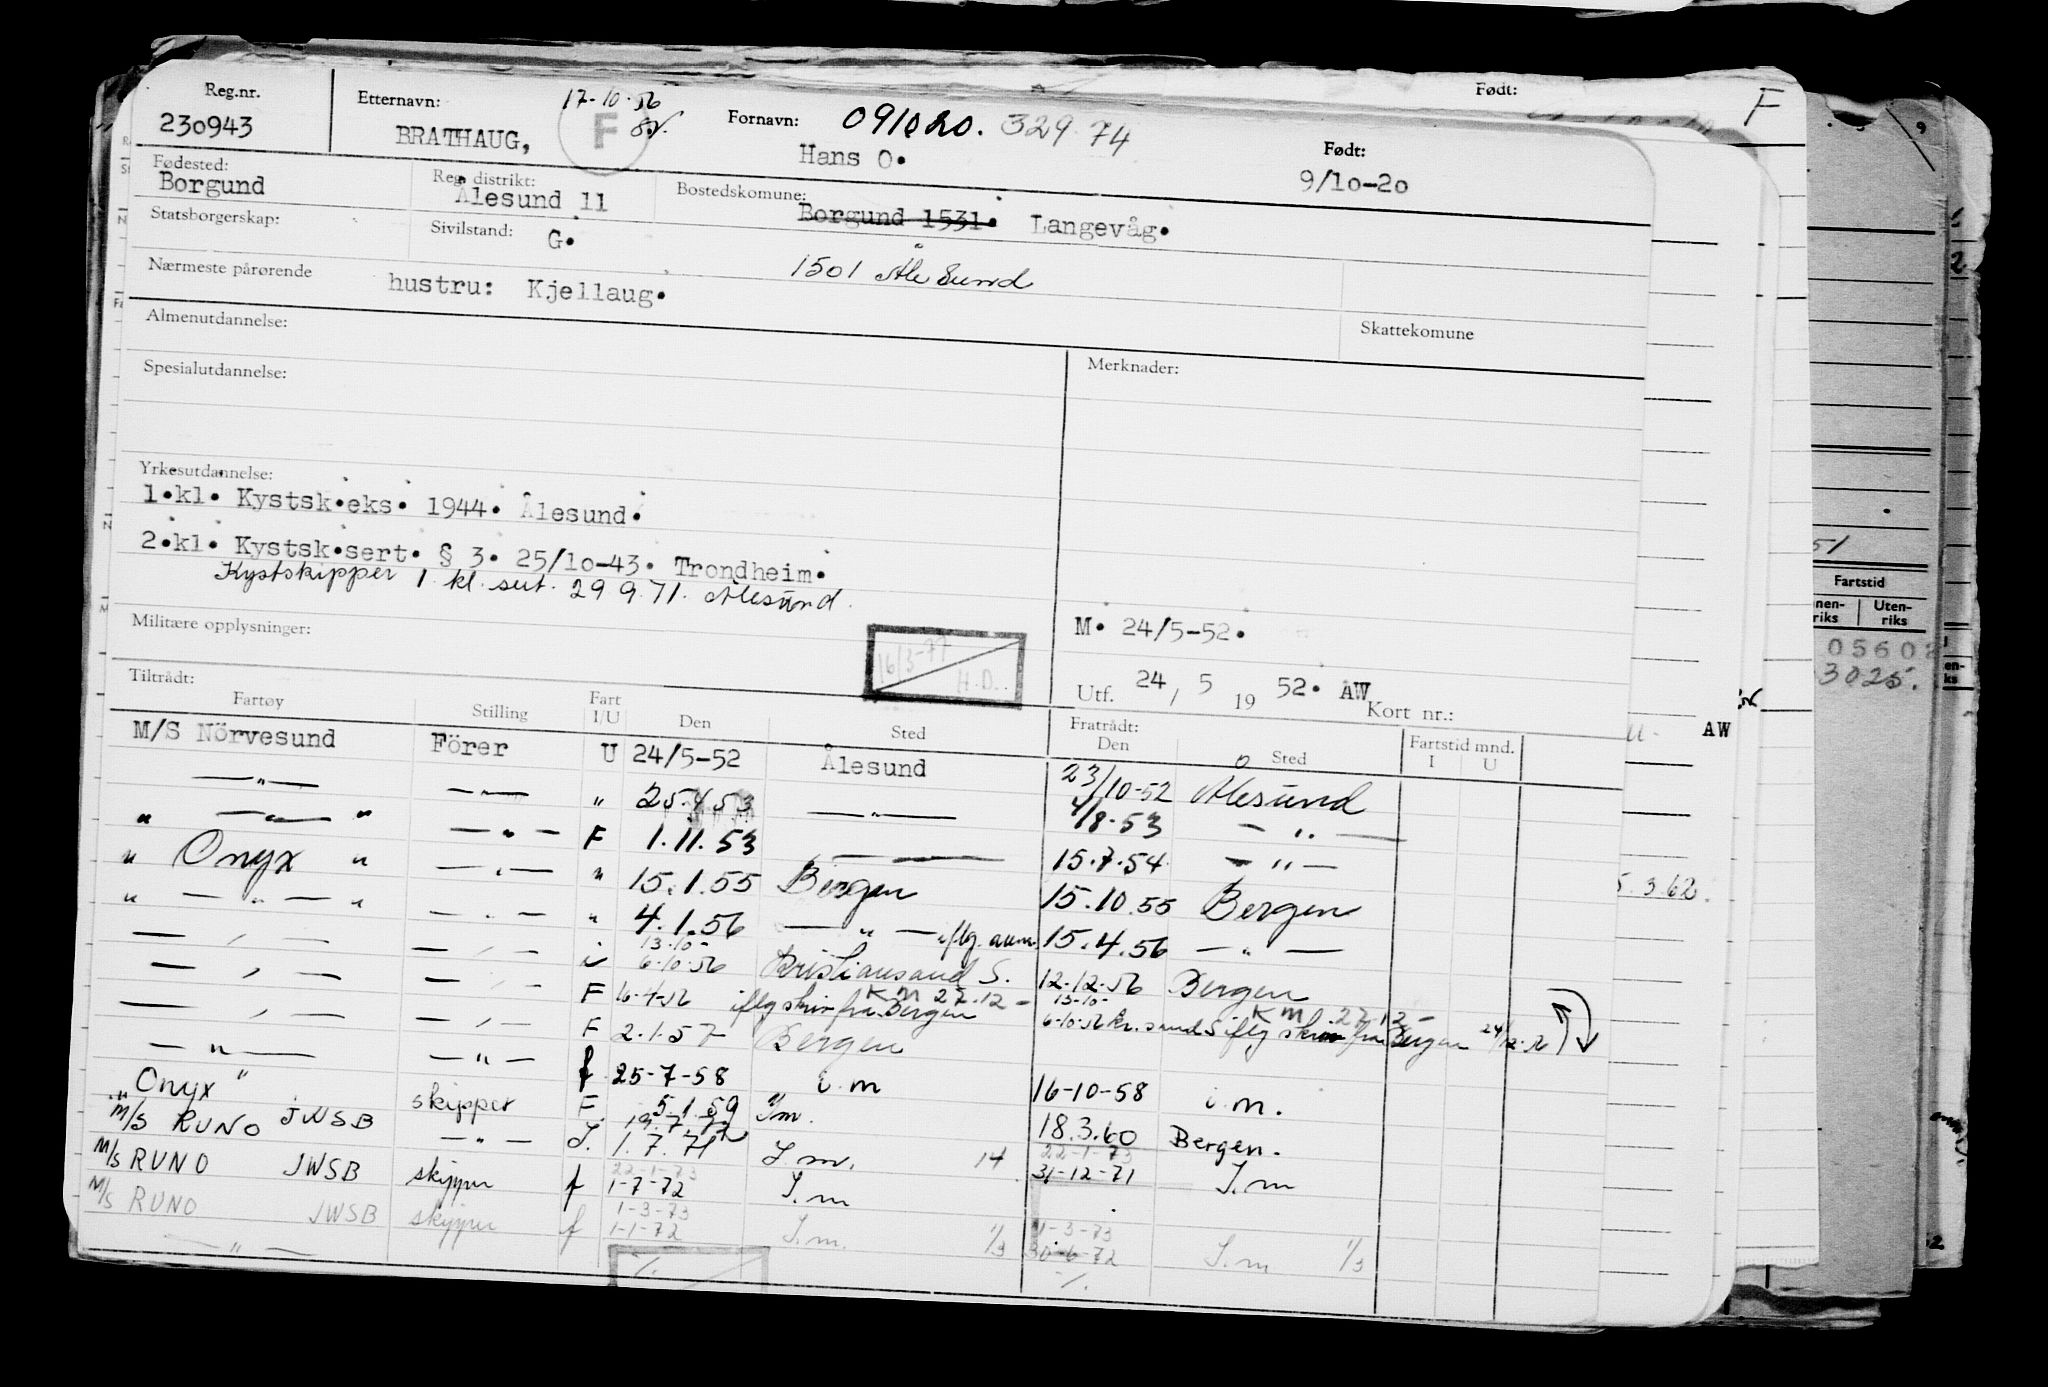 Reg.nr. Etternavn: 17-10-56 Fornavn: 091020. 329 74 Født: F
230943 BRATHAUG, F Hans O. Født: 9/10-20
Fødested: Reg. distrikt: Bostedskomune:
Borgund Ålesund 11 Borgund 1531. Langevåg.
Statsborgerskap: Sivilstand: G.
1501 Ålesund
Nærmeste pårørende hustru: Kjellaug.
Almenutdannelse: Skattekomune
Spesialutdannelse: Merknader:
Yrkesutdannelse:
1.kl. Kystsk.eks. 1944. Ålesund.
2.kl. Kystsk.sert. § 3. 25/10-43. Trondheim.
Kystskipper 1 kl. sert. 29 9.71. Ålesund.
Militære opplysninger: M. 24/5-52.
16/3-77 H.D.
Utf. 24 / 5 19 52. ÅW Kort nr.:
Tiltrådt: Fratrådt:
Fartøy Stilling Fart I/U Den Sted Den Sted Fartstid mnd. I U
M/S Nörvesund Förer U 24/5-52 Ålesund 23/10-52 Ålesund
—"— —"— " 25.4.53 —"— 4/8-53 —"—
" —"— " —"— F 1.11.53 —"— 15.7.54 —"—
" Onyx " —"— " 15.1.55 Bergen 15.10.55 Bergen
" —"— " —"— " 4.1.56 —"— iflg. anm. 15.4.56 —"—
—"— —"— 13.10- 6-10-56 Kristiansand S. 12.12.56 Bergen
—"— —"— F 16-4-56 iflg skriv fra Bergen KM 27.12- 13-10- 6-10-56 Kr.sand S iflg skriv fra Bergen KM 27.12-
—"— —"— F 2.1.57 Bergen
—"— —"— f 25-7-58 i.m 16-10-58 i.m.
" Onyx " skipper F. 5.1.59 I/m. 18.3.60 Bergen.
M/S RUNO JWSB —"— 1.7.71 I.m. 14 22-1-73 31-12-71 I.m
M/S RUNO JWSB skipper f 22-1-73 1-7-72 I.m
M/S RUNO JWSB skipper f 1-3-73 1-1-72 I.m. 1/3 1-3-73 30-6-72 I.m 1/3
—"—
Født:
F
51
Fartstid
Uten-
riks
05602
3025.
AW
5.3.62.